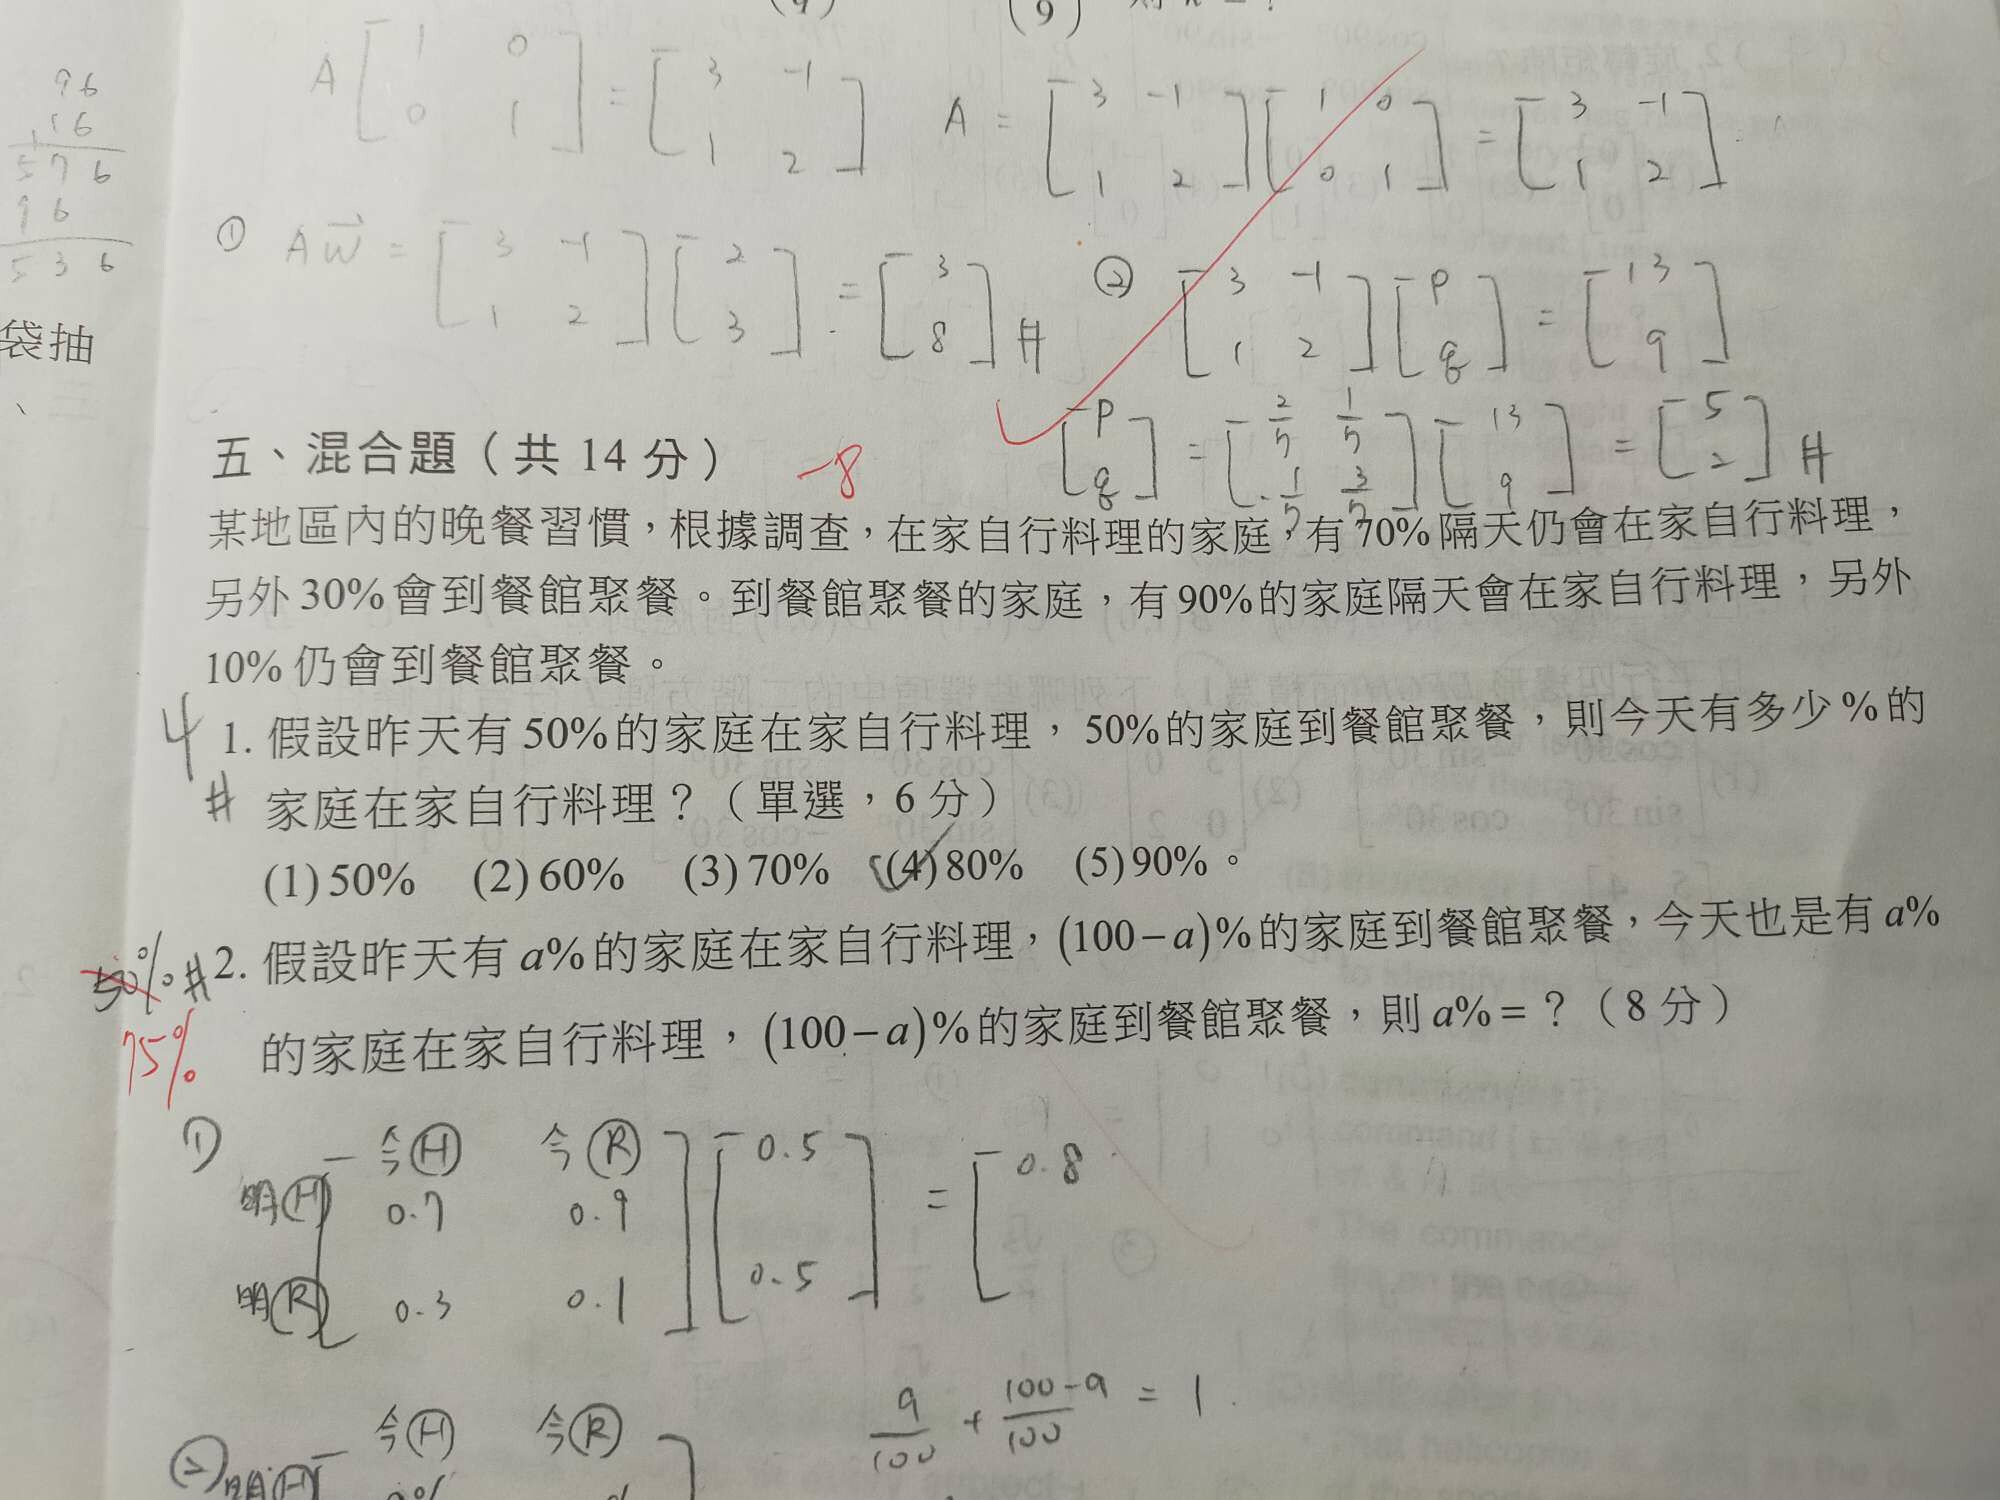 96
16
576
96
536
袋抽
、
A [1 0 0 1] = [3 -1 1 2]
A = [3 -1 1 2] [1 0 0 1] = [3 -1 1 2]
① Aw = [3 -1 1 2] [2 3] = [3 8] #
② [3 -1 1 2] [p q] = [13 9]
[p q] = [2/5 1/5 -1/5 3/5] [13 9] = [5 2] #
五、混合題（共 14 分） -8
某地區內的晚餐習慣，根據調查，在家自行料理的家庭，有 70% 隔天仍會在家自行料理，
另外 30% 會到餐館聚餐。到餐館聚餐的家庭，有 90% 的家庭隔天會在家自行料理，另外
10% 仍會到餐館聚餐。
4 # 1. 假設昨天有 50% 的家庭在家自行料理，50% 的家庭到餐館聚餐，則今天有多少 % 的
家庭在家自行料理？（單選，6 分）
(1) 50% (2) 60% (3) 70% (4) 80% (5) 90%。
50% # 2. 假設昨天有 a% 的家庭在家自行料理，(100-a)% 的家庭到餐館聚餐，今天也是有 a%
75% 的家庭在家自行料理，(100-a)% 的家庭到餐館聚餐，則 a% = ？（8 分）
① 今Ⓗ 今Ⓡ
明Ⓗ 0.7 0.9
明Ⓡ 0.3 0.1
[0.5 0.5] = [0.8
a/100 + 100-a/100 = 1
② 今Ⓗ 今Ⓡ
明Ⓗ